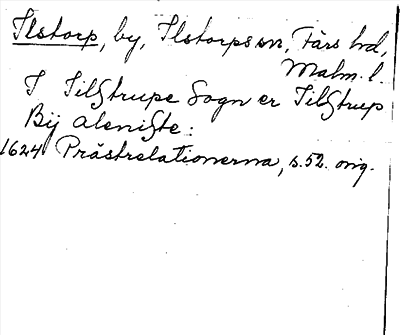 Ilstorp, by, Ilstorps sn, Färs hd,
Malm. l.
I Jilstrupe Sogn er Jilstrup
Bÿ aleniste:
1624 Prästrelationerna, s. 52. orig.